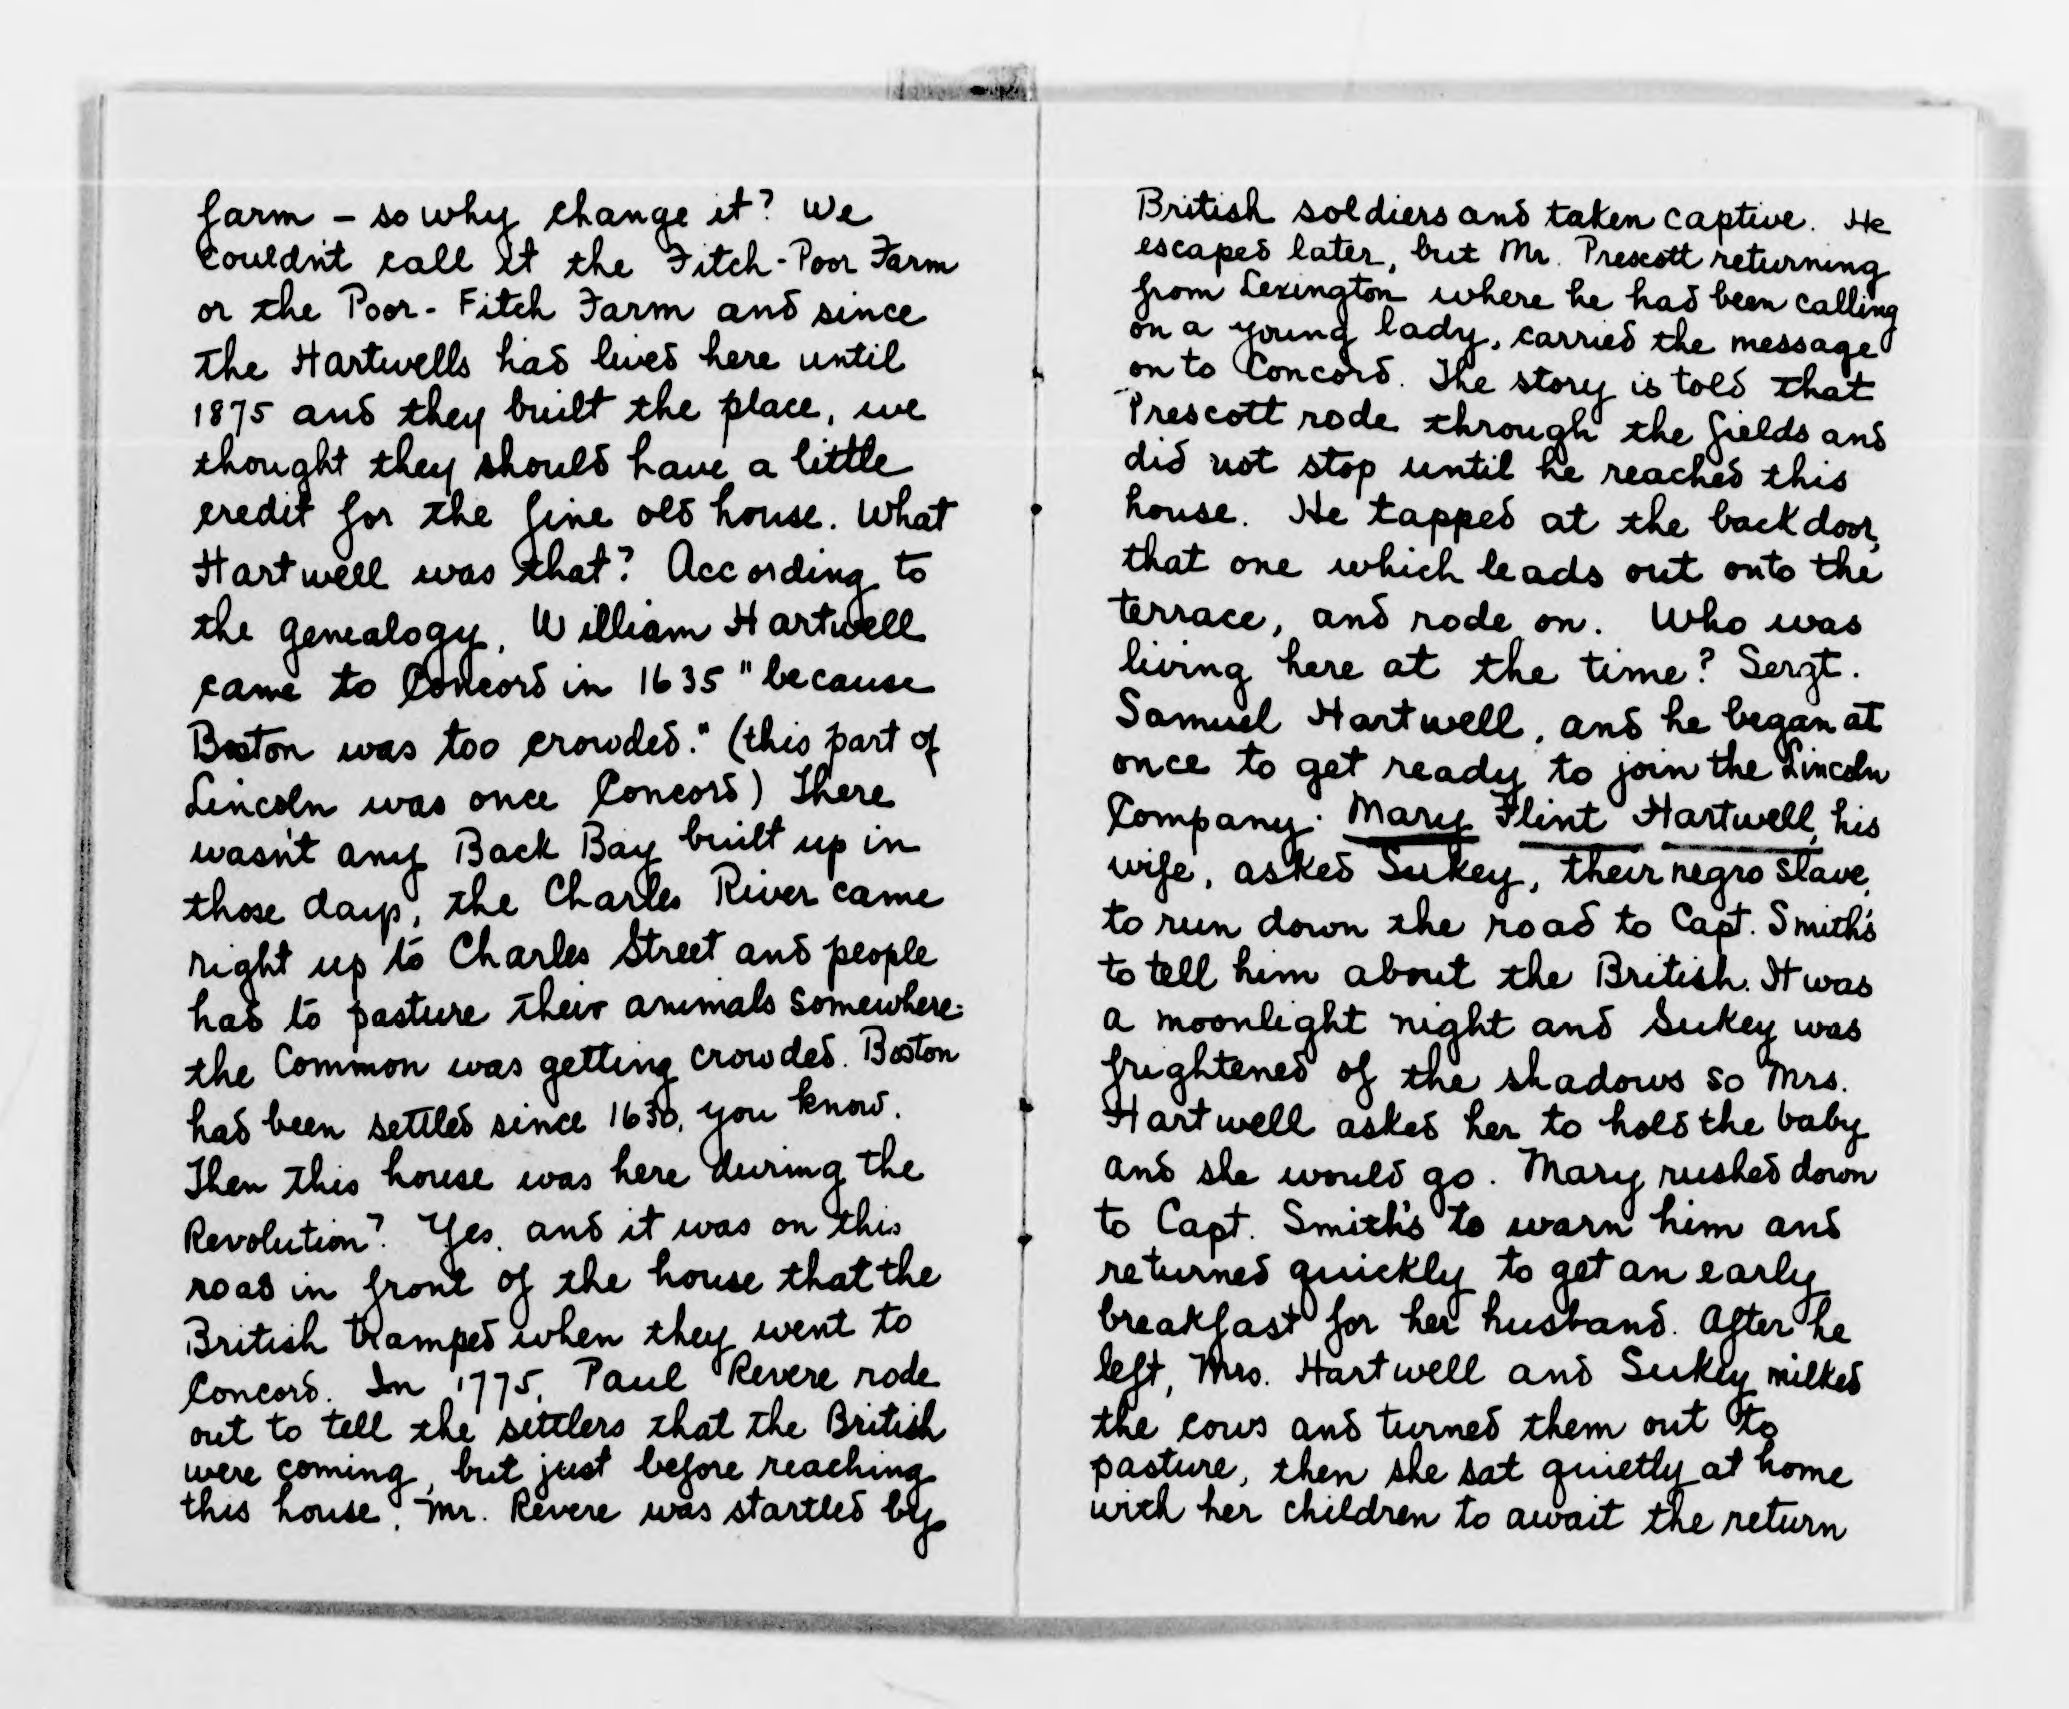 farm – so why change it? We
couldn't call it the Fitch-Poor Farm
or the Poor-Fitch Farm and since
the Hartwells had lived here until
1875 and they built the place, we
thought they should have a little
credit for the fine old house. What
Hartwell was that? According to
the genealogy, William Hartwell
came to Concord in 1635 "because
Boston was too crowded." (this part of
Lincoln was once Concord) There
wasn't any Back Bay built up in
those days, the Charles River came
right up to Charles Street and people
had to pasture their animals somewhere-
the Common was getting crowded. Boston
had been settled since 1630, you know.
Then this house was here during the
Revolution? Yes, and it was on this
road in front of the house that the
British tramped when they went to
Concord. In 1775, Paul Revere rode
out to tell the settlers that the British
were coming, but just before reaching
this house, Mr. Revere was startled by
British soldiers and taken captive. He
escaped later, but Mr. Prescott returning
from Lexington where he had been calling
on a young lady, carried the message
on to Concord. The story is told that
Prescott rode through the fields and
did not stop until he reached this
house. He tapped at the back door,
that one which leads out onto the
terrace, and rode on. Who was
living here at the time? Sergt.
Samuel Hartwell, and he began at
once to get ready to join the Lincoln
Company. Mary Flint Hartwell, his
wife, asked Sukey, their negro slave,
to run down the road to Capt. Smith's
to tell him about the British. It was
a moonlight night and Sukey was
frightened of the shadows so Mrs.
Hartwell asked her to hold the baby
and she would go. Mary rushed down
to Capt. Smith's to warn him and
returned quickly to get an early
breakfast for her husband. After he
left, Mrs. Hartwell and Sukey milked
the cows and turned them out to
pasture, then she sat quietly at home
with her children to await the return